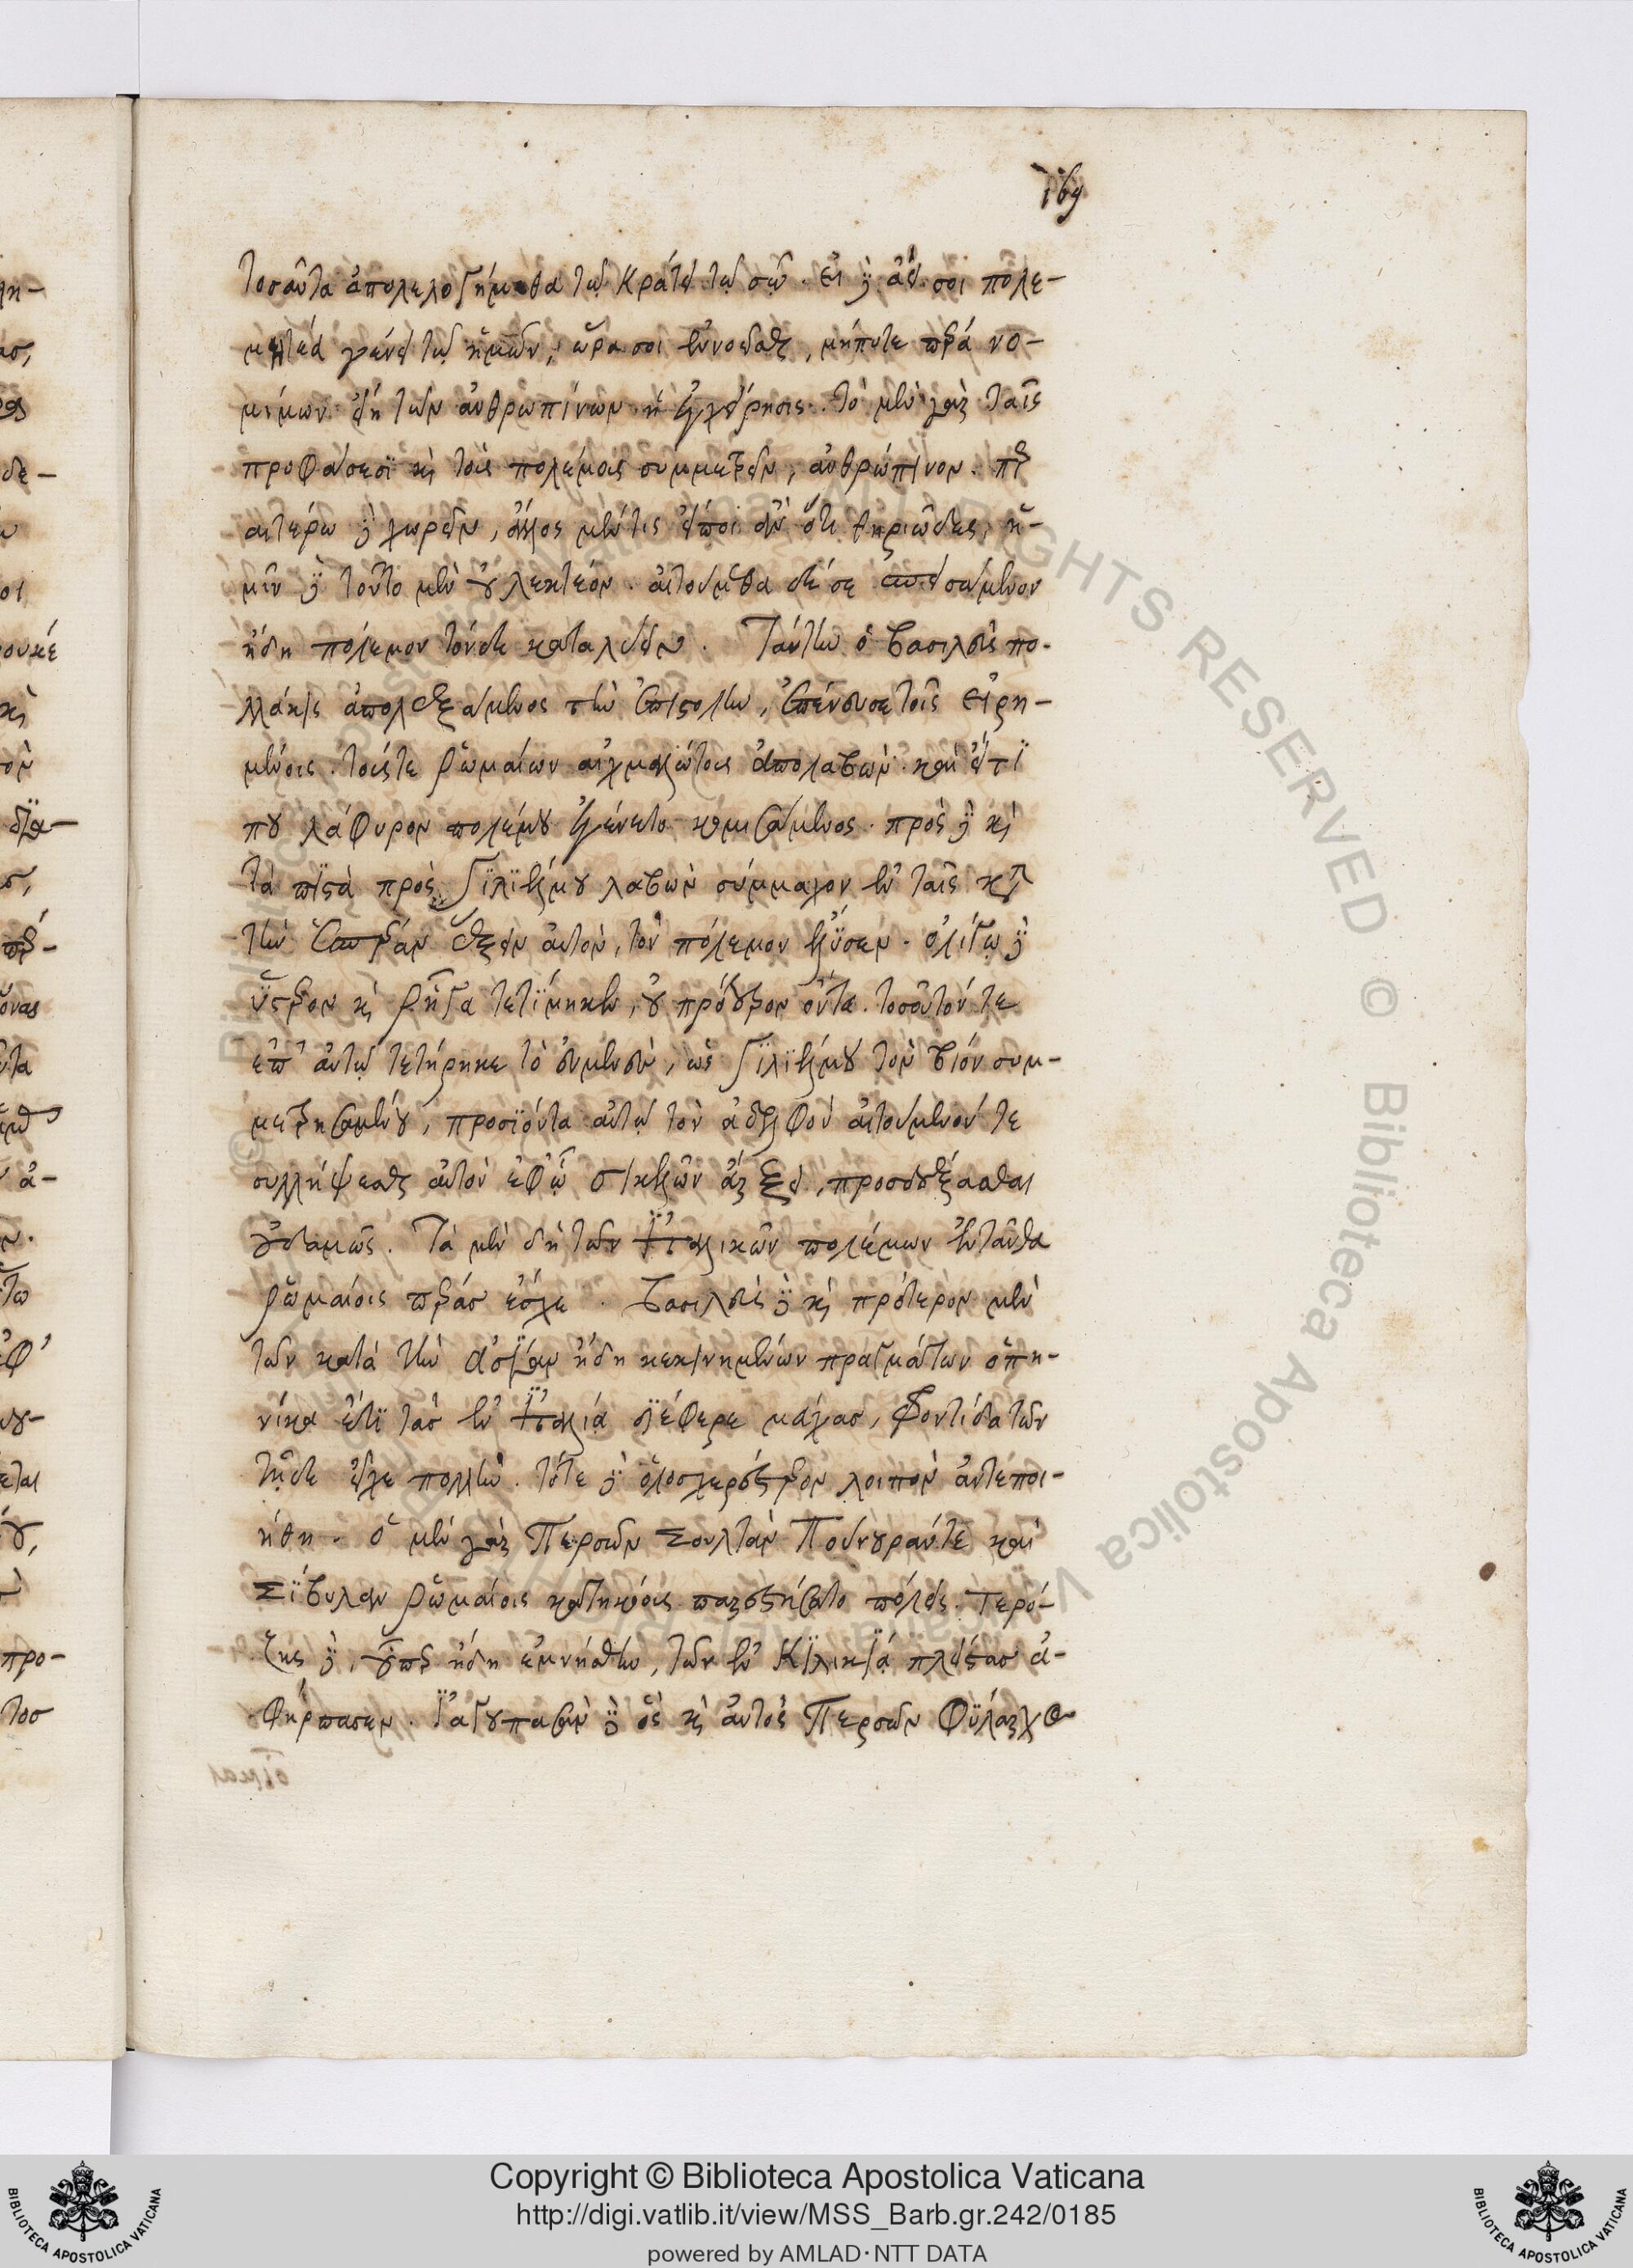 169
τοσαῦτα ἀπολελογήμεθα τῷ κράτει τῷ σῷ. εἰ δὲ ἀεί σοι πολε-
μητέα γένει τῷ ἡμῶν, ὥρα σοι ἐννοεῖσθαι, μήποτε παρὰ νο-
μίμων εἴη τῶν ἀνθρωπίνων ἡ ἐγχείρησις. τὸ μὲν γὰρ ταῖς
προφάσεσϊ καὶ τοὺς πολέμους συμμετρεῖν, ἀνθρώπινον. περ
αιτέρω δὲ χωρεῖν, ἄλλος μέν τις εἴποι ἂν ὅτι θηριῶδες, ἡ-
μῖν δὲ τοῦτο μὲν οὐ λεκτέον. αἰτούμεθα δέ σε σπεισάμενον
ἤδη πόλεμον τόνδε καταλύειν. Ταύτην ὁ βασιλεὺς πο-
λλάκις ἀπολεξάμενος τὴν ἐπιστολὴν, ἐπένευσε τοῖς εἰρη-
μένοις. τούς τε ῥωμαίων αἰχμαλώτους ἀπολαβὼν καὶ εἴ τϊ
που λάφυρον πολέμου ἐγένετο κομισάμενος. πρὸς δὲ καὶ
τὰ πιστὰ πρὸς Γϊλϊέλμου λαβὼν σύμμαχον ἐν ταῖς κατὰ
τὴν ἑσπέραν ἕξειν αὐτὸν, τὸν πόλεμον ἔλϋσεν. ὀλίγῳ δὲ
ὕστερον καὶ ῥῆγα τετίμηκεν, οὐ πρότερον ὄντα. τοσοῦτόν τε
ἐπ' αὐτῷ τετήρηκε τὸ εὐμενὲς, ὡς Γϊλϊέλμου τὸν βίον συμ-
μετρησαμένου, προσϊόντα αὐτῷ τὸν ἀδελφὸν αἰτούμενόν τε
συλλήψεσθαι αὐτὸν ἐφ' ᾧ σικελῶν ἄρξει, προσδέξασθαι
οὐδαμῶς. Τὰ μὲν δὴ τῶν Ἰταλικῶν πολέμων ἐνταῦθα
ῥωμαίοις πέρας ἔσχε. βασιλεὺς δὲ καὶ πρότερον μὲν
τῶν κατὰ τὴν ἀσΐαν ἤδη κεκινημένων πραγμάτων ὁπη-
νίκα ἔτϊ τὰς ἐν Ἰταλίᾳ διέφερε μάχας, φροντίδα τῶν
τῇδε εἶχε πολλήν. τότε δὲ ὁλοσχερέστερον λοιπὸν ἀντεποι-
ήθη. ὁ μὲν γὰρ Περσῶν Σουλτὰν Πουνουράντε καὶ
Σϊβυλαν ῥωμαίοις κατηκόους παρεστήσατο πόλεις. Τερό-
ζης δὲ, οὗπερ ἤδη ἐμνήσθην, τῶν ἐν Κϊλικϊᾳ πλείστας ἀ-
φήρπασεν. Ἰαγουπασὰν δὲ ὃς καὶ αὐτὸς Περσῶν φϋλάρχει
Copyright © Biblioteca Apostolica Vaticana
http://digi.vatlib.it/view/MSS_Barb.gr.242/0185
powered by AMLAD·NTT DATA